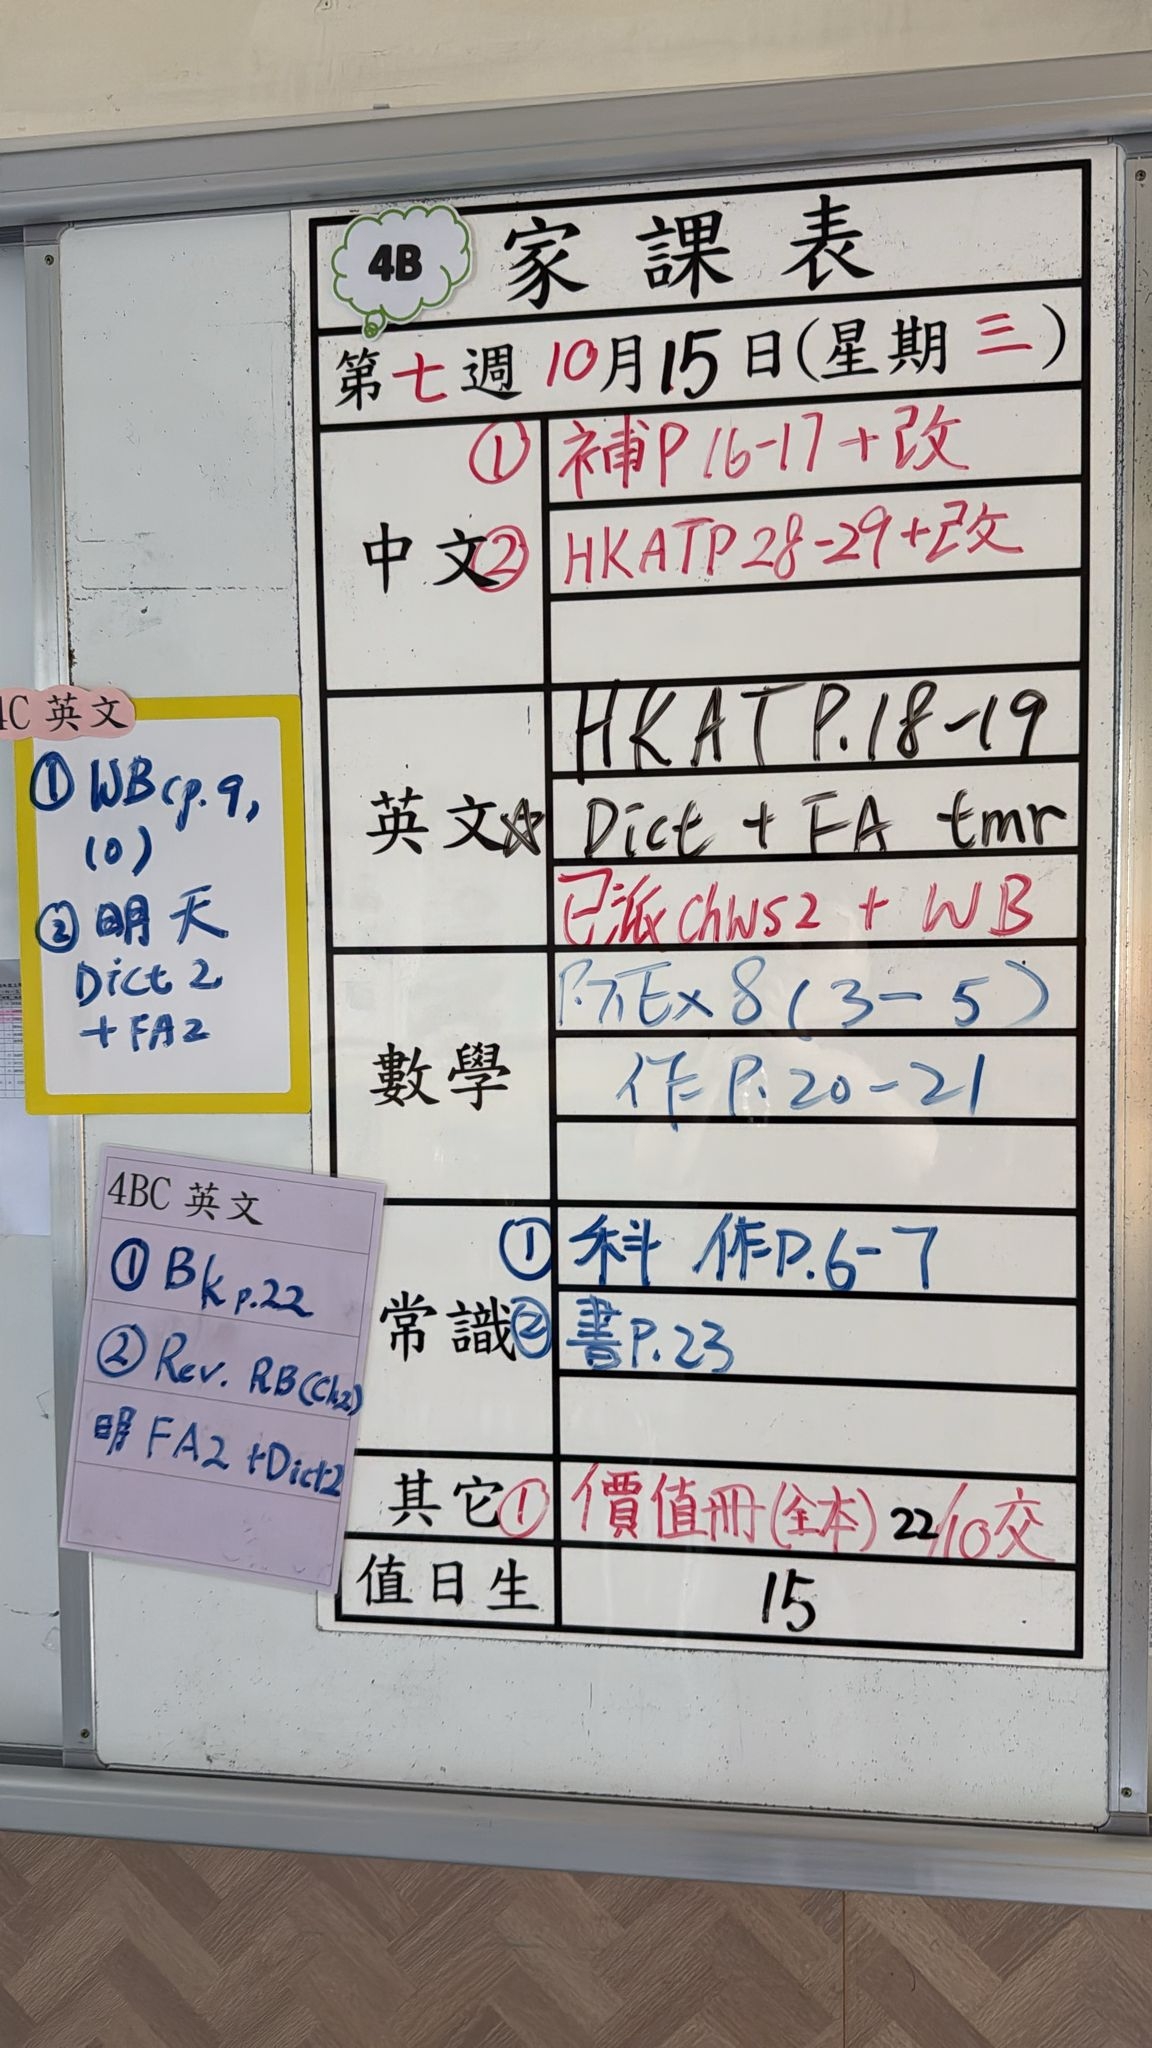 4B 家課表
第七週 10月15日(星期三)
中文
① 補P 16-17 + 改
② HKATP 28-29 + 改
英文
HKAT P.18-19
☆ Dict + FA tmr
已派 ChWS2 + WB
數學
Ex 8 (3-5)
作 P. 20-21
常識
① 科 作P.6-7
② 書P.23
其它
① 價值冊(全本) 22/10交
值日生 15
4C 英文
① WB (p.9,
10)
② 明天
Dict 2
+ FA2
4BC 英文
① Bk p.22
② Rev. RB (Ch2)
明 FA2 + Dict2